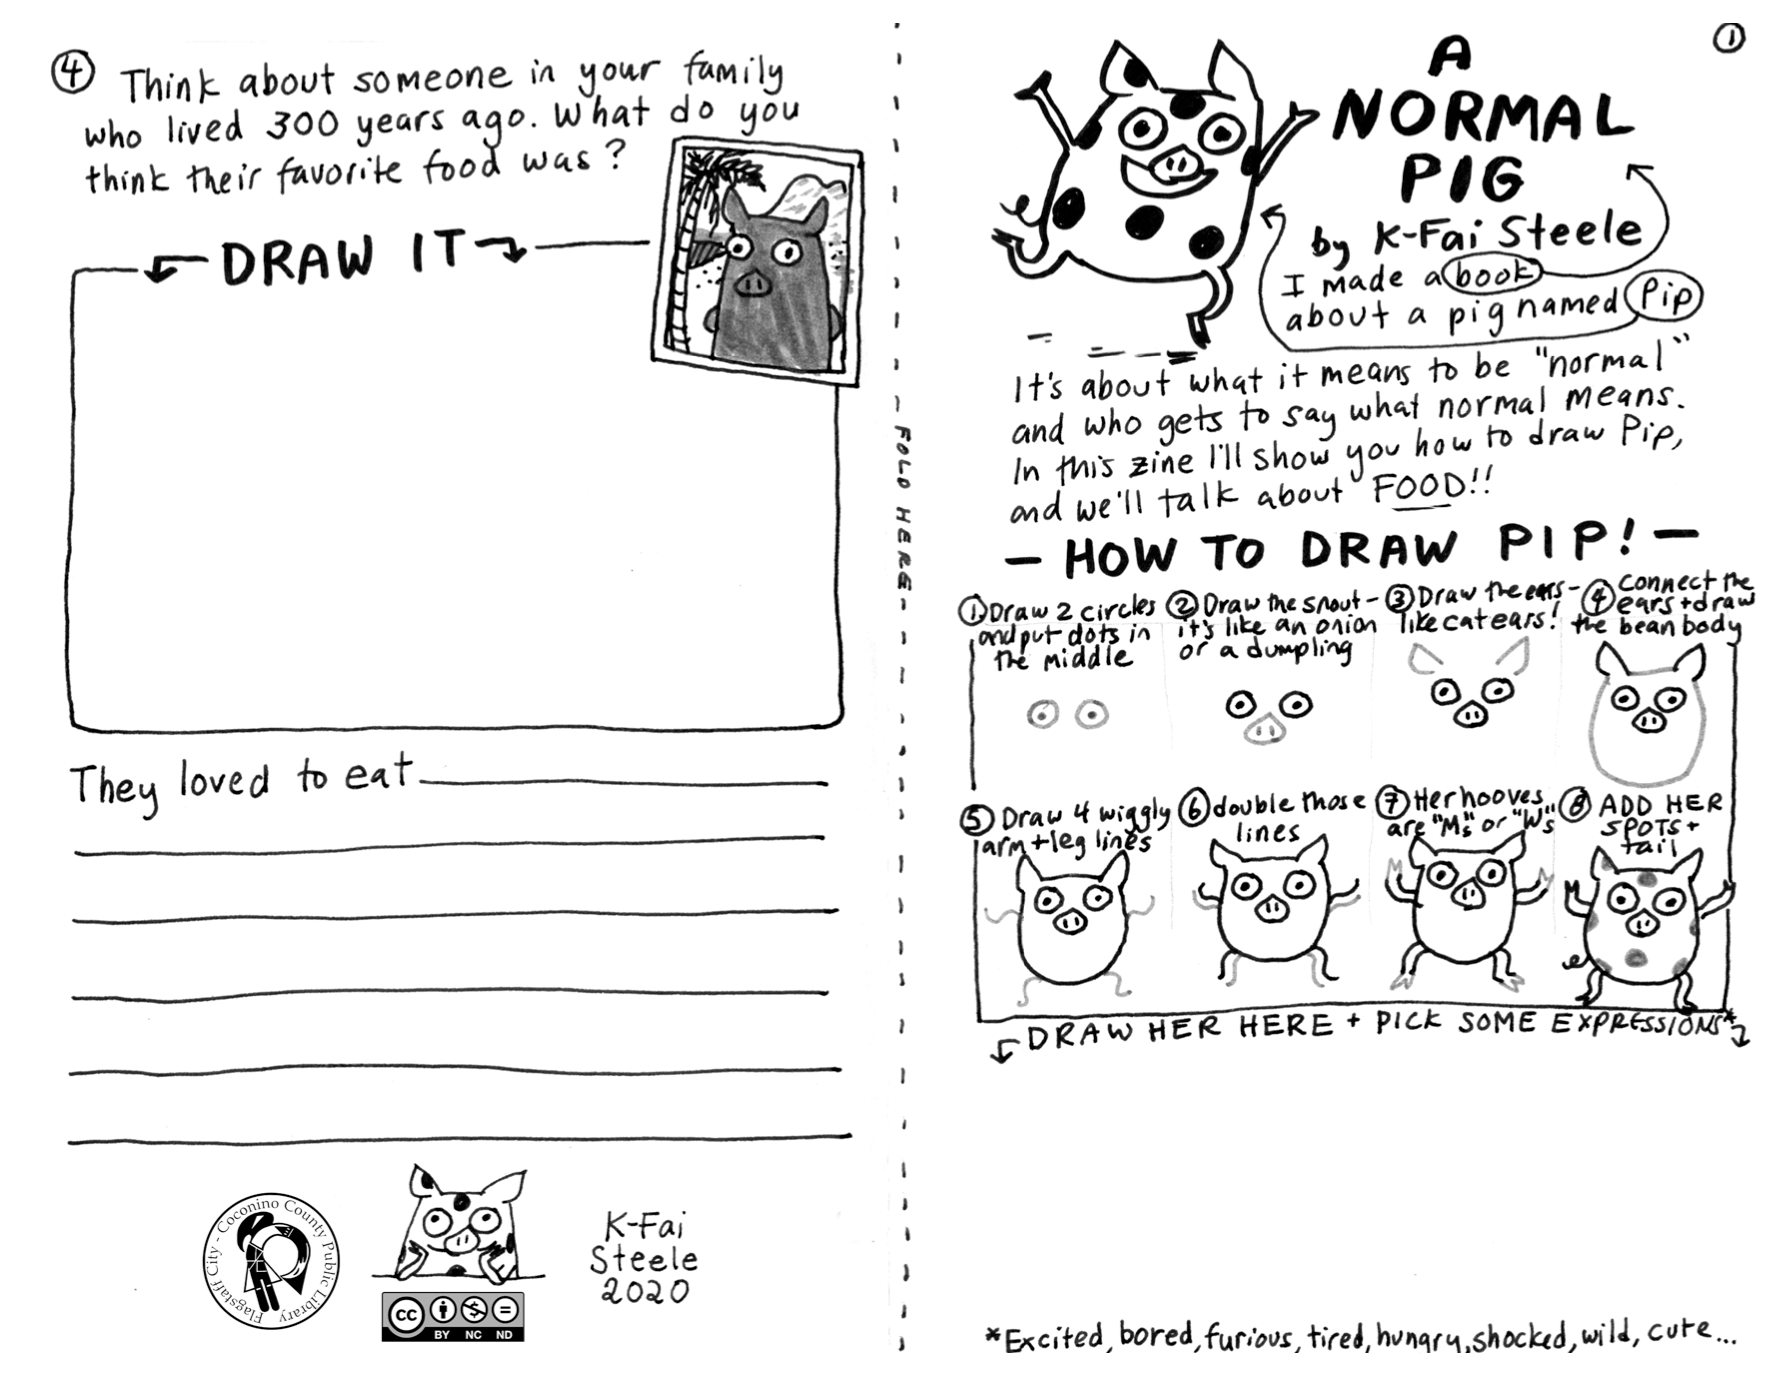 ④ Think about someone in your family
who lived 300 years ago. What do you
think their favorite food was?
DRAW IT
They loved to eat
Flagstaff City - Coconino County Public Library
K-Fai
Steele
2020
CC BY NC ND
- FOLD HERE -
①
A
NORMAL
PIG
by K-Fai Steele
I made a book
about a pig named Pip
It's about what it means to be "normal"
and who gets to say what normal means.
In this zine I'll show you how to draw Pip,
and we'll talk about FOOD!!
- HOW TO DRAW PIP! -
① Draw 2 circles
and put dots in
the middle
② Draw the snout -
it's like an onion
or a dumpling
③ Draw the ears -
like cat ears!
④ Connect the
ears + draw
the bean body
⑤ Draw 4 wiggly
arm + leg lines
⑥ double those
lines
⑦ Her hooves
are "M"s or "W"s
⑧ ADD HER
SPOTS +
tail
DRAW HER HERE + PICK SOME EXPRESSIONS*
*Excited, bored, furious, tired, hungry, shocked, wild, cute...